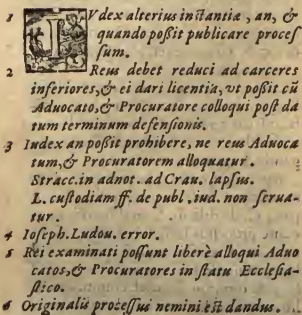 1 IVdex alterius instantiæ, an, &
quando poßit publicare proceſ
ſum.
2 Reus debet reduci ad carceres
inferiores, & ei dari licentia, vt poßit cū
Aduocato, & Procuratore colloqui poſt da
tum terminum defenſionis.
3 Iudex an poßit prohibere, ne reus Aduoca
tum, & Procuratorem alloquatur.
Stracc. in adnot. ad Crau. lapſus.
L. cuſtodiam ff. de publ. iud. non ſerua-
tur.
4 Ioſeph. Ludou. error.
5 Rei examinati poſſunt liberè alloqui Aduo
catos, & Procuratores in ſtatu Eccleſia-
ſtico.
6 Originalis proceſſus nemini eſt dandus.